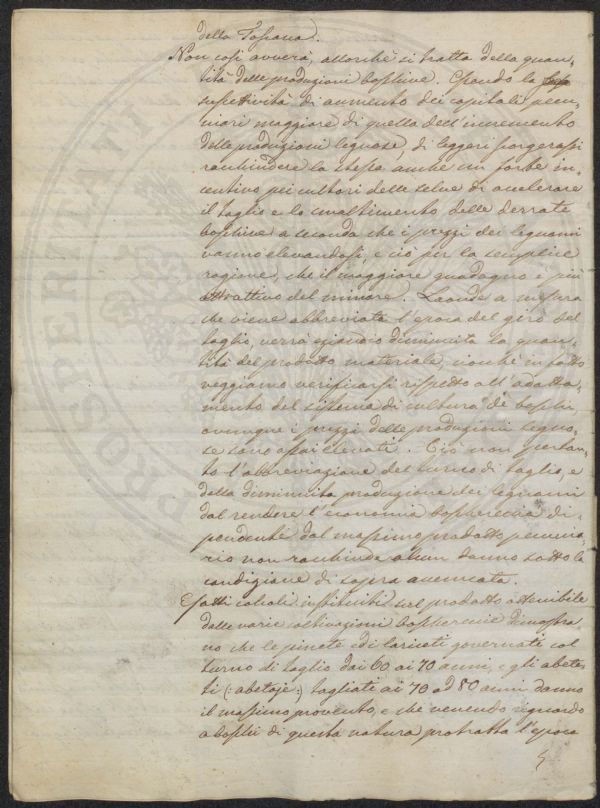 della Toscana.
Non così avverrà, allorchè si tratta della quan-
tità delle produzioni boschive. Essendo la
suscettività di aumento dei capitali pecu-
niari maggiore di quella dell'incremento
delle produzioni legnose, di leggeri scorgerassi
racchindere la stessa anche un forte in-
centivo pei cultori delle selve di accelerare
il taglio e lo smaltimento delle derrate
boschive a seconda che i prezzi dei legnami
vanno elevandosi, e ciò per la semplice
ragione, che il maggiore guadagno è più
attrattivo del minore. Laonde a misura
che viene abbreviata l'epoca del giro del
taglio, verrà eziandio diminuita la quan-
tità del prodotto materiale, ciochè in fatto
veggiamo verificarsi rispetto all'adatta-
mento del sistema di cultura di boschi,
ovunque i prezzi delle produzioni legno-
se sono assai elevati. Ciò non pertan-
to l'abbreviazione del turno di taglio, e
della diminuita produzione dei legnami
dal rendere l'economia boschereccia di-
pendente dal massimo prodotto pecunia-
rio non racchinde alcun danno sotto la
condizione di sopra accennata.
Esatti calcoli instituiti sul prodotto ottenibile
dalle varie coltivazioni boschereccie dimostra-
no che le pinete ed i lariceti governati col
turno di taglio dai 60 ai 70 anni, e gli abete-
ti (: abetaje :) tagliati ai 70 ad 80 anni danno
il massimo provento, e che venendo riguardo
a boschi di questa natura protratta l'epoca
PROSPERITATI